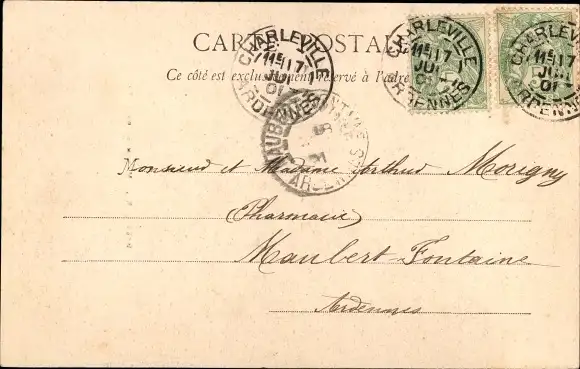 CARTE POSTALE
Ce côté est exclusivement réservé à l'adresse
CHARLEVILLE
11E 17
JUI
01
ARDENNES
CHARLEVILLE
11E 17
JUI
01
ARDENNES
CHARLEVILLE
11E 17
JUI
01
ARDENNES
MAUBERT-FONTAINE
ARDENNES
Monsieur et Madame Arthur Morigny
(Pharmacie)
Maubert-Fontaine
Ardennes